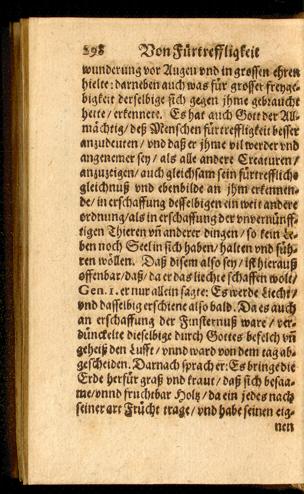 298 Von Fürtreffligkeit
wunderung vor Augen vnd in grossen ehren
hielte: darneben auch was für grosser freyge-
bigkeit derselbige sich gegen jhme gebraucht
hette/ erkennete. Es hat auch Gott der All-
mächtig/ deß Menschen fürtreffligkeit besser
anzudeuten/ vnd daß er jhme vil werder vnd
angenemer sey/ als alle andere Creaturen/
anzuzeigen/ auch gleichsam sein fürtreffliche
gleichnuß vnd ebenbilde an jhm erkennen-
de/ in erschaffung desselbigen ein weit andere
ordnung/ als in erschaffung der vnvernünff-
tigen Thieren vñ anderer dingen/ so kein Le-
ben noch Seel in sich haben/ halten vnd füh-
ren wöllen. Daß disem also sey/ ist hierauß
offenbar/ daß/ da er das liechte schaffen wolt/
Gen. 1. er nur allein sagte: Es werde Liecht/
vnd dasselbig erschiene also bald. Da es auch
an erschaffung der Finsternuß ware/ ver-
dünckelte dieselbige durch Gottes befelch vñ
geheiß den Lufft/ vnnd ward von dem tag ab-
gescheiden. Darnach sprach er: Es bringe die
Erde herfür graß vnd kraut/ daß sich besaa-
me/ vnnd fruchtbar Holtz/ da ein jedes nach
seiner art Frücht trage/ vnd habe seinen eig-
nen